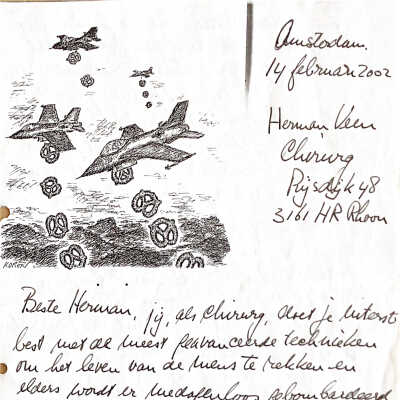 Amsterdam
14 februari 2002
Herman Veen
Chirurg
Rijsdijk 48
3161 HR Rhoon
Beste Herman, jij, als chirurg, doet je uiterst
best met de meest geavanceerde technieken
om het leven van de mens te rekken en
elders wordt er medogenloos gebombardeerd